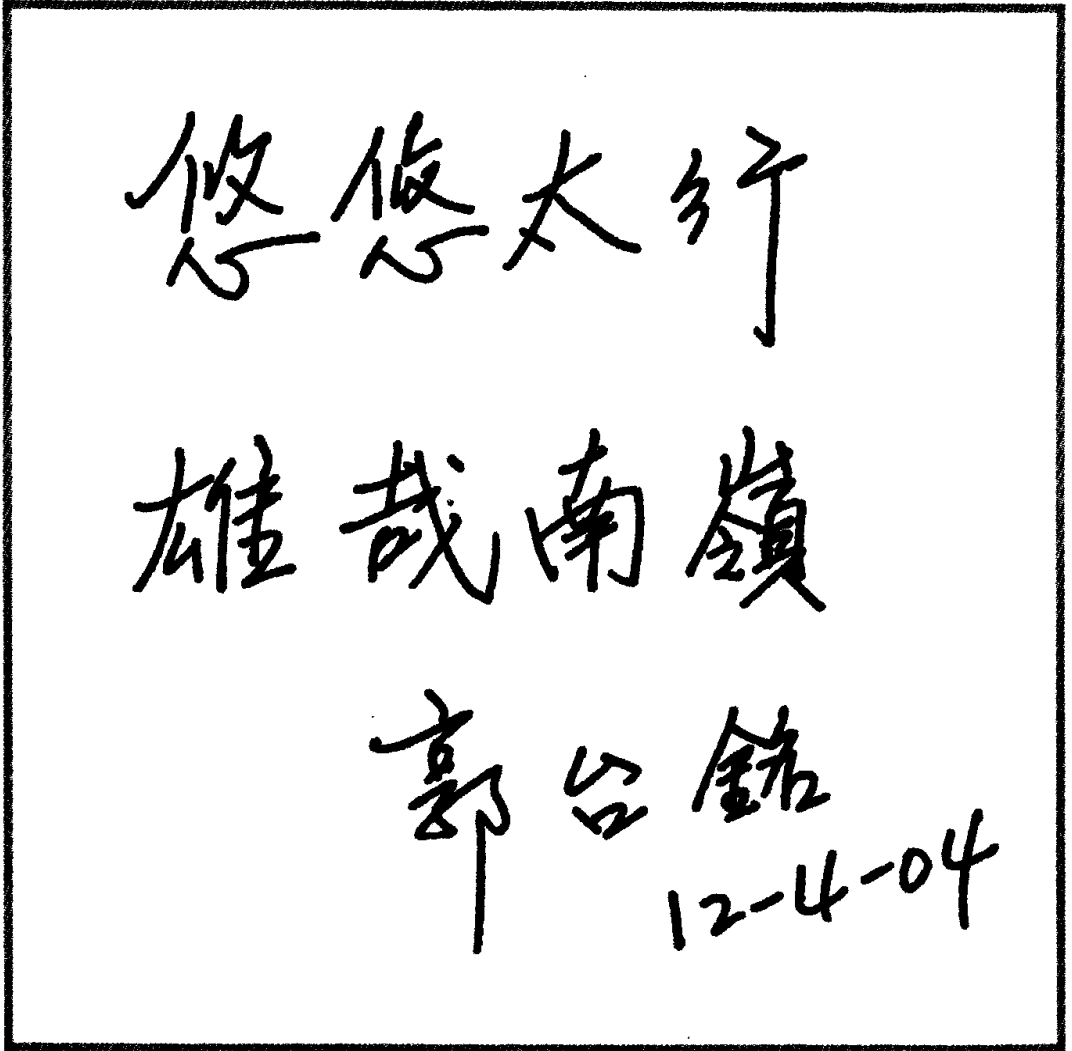 悠悠太行
雄哉南嶺
郭台銘
12-4-04